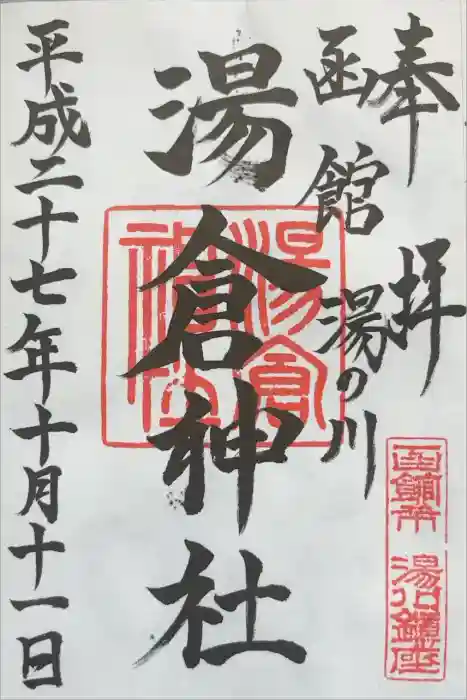 奉拝
函館湯の川
湯倉神社
平成二十七年十月十一日
湯倉神社
函館市湯川鎮座